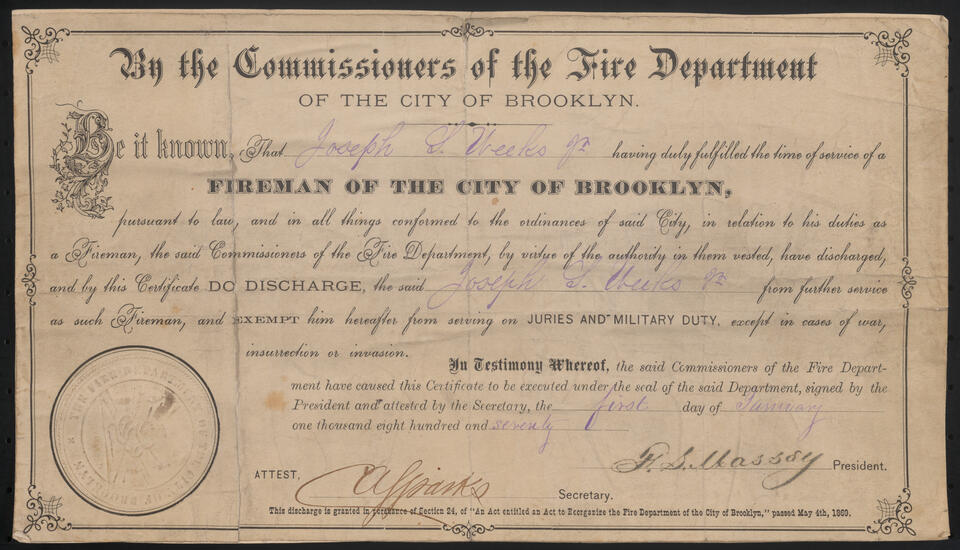 By the Commissioners of the Fire Department
OF THE CITY OF BROOKLYN.
Be it known, That Joseph S. Weeks Jr. having duly fulfilled the time of service of a
FIREMAN OF THE CITY OF BROOKLYN,
pursuant to law, and in all things conformed to the ordinances of said City, in relation to his duties as
a Fireman, the said Commissioners of the Fire Department, by virtue of the authority in them vested, have discharged,
and by this Certificate DO DISCHARGE, the said Joseph S. Weeks Jr. from further service
as such Fireman, and EXEMPT him hereafter from serving on JURIES AND MILITARY DUTY, except in cases of war,
insurrection or invasion.
In Testimony Whereof, the said Commissioners of the Fire Depart-
ment have caused this Certificate to be executed under the seal of the said Department, signed by the
President and attested by the Secretary, the first day of January
one thousand eight hundred and seventy
F. S. Massey President.
ATTEST, Secretary.
This discharge is granted in pursuance of Section 24, of "An Act entitled an Act to Reorganize the Fire Department of the City of Brooklyn," passed May 4th, 1869.